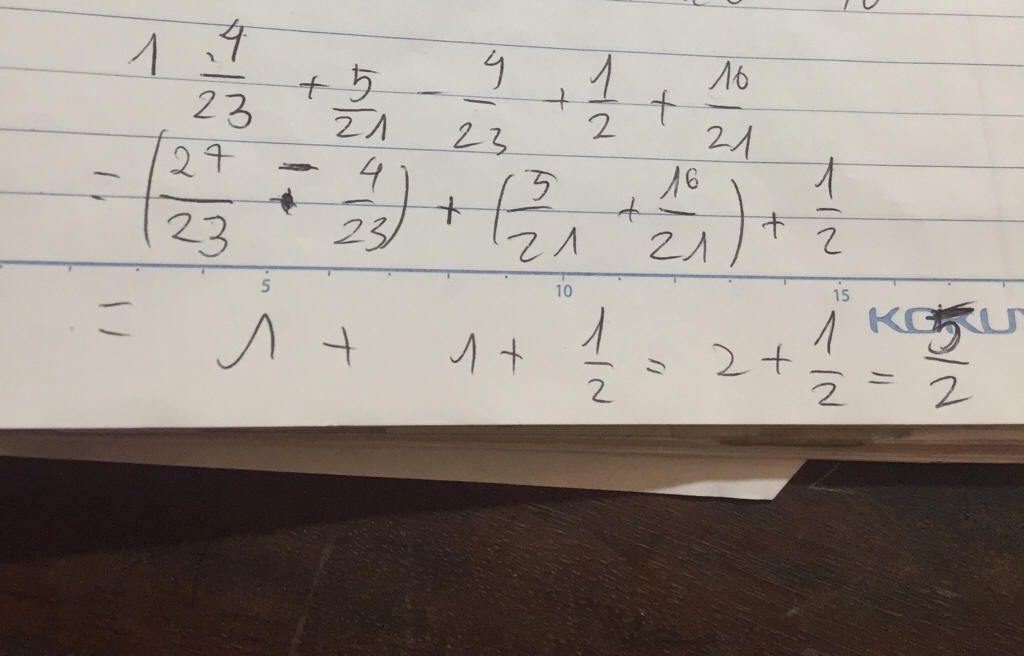 1 4/23 + 5/21 - 4/23 + 1/2 + 16/21
= (27/23 - 4/23) + (5/21 + 16/21) + 1/2
5 10 15
KOKU
= 1 + 1 + 1/2 = 2 + 1/2 = 5/2